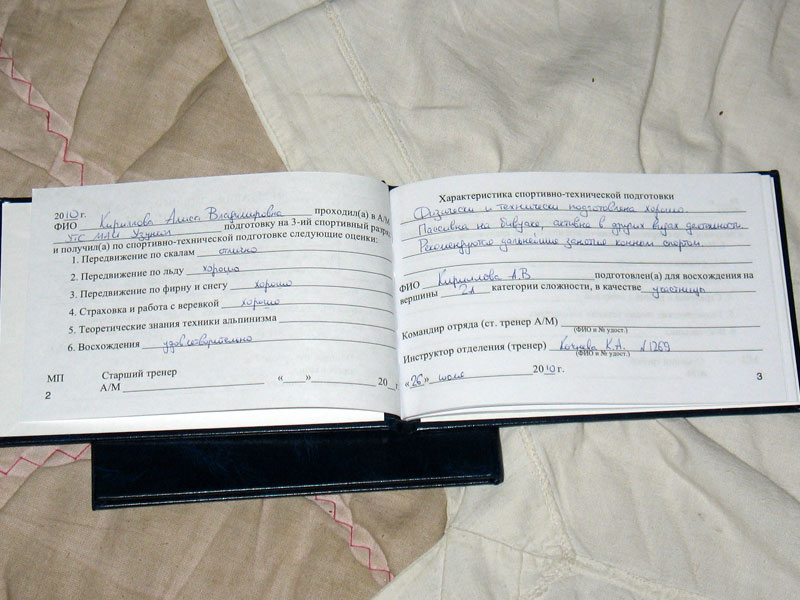 2010 г.
ФИО Кириллова Алиса Владимировна проходил(а) в А/М
УТС МАИ Узункол подготовку на 3-ий спортивный разряд
и получил(а) по спортивно-технической подготовке следующие оценки:
1. Передвижение по скалам отлично
2. Передвижение по льду хорошо
3. Передвижение по фирну и снегу хорошо
4. Страховка и работа с веревкой хорошо
5. Теоретические знания техники альпинизма
6. Восхождения удовлетворительно
МП Старший тренер
А/М «___» 20__ г.
2
Характеристика спортивно-технической подготовки
Физически и технически подготовлена хорошо.
Пассивна на бивуаке, активна в других видах деятельности.
Рекомендуются дальнейшие занятия конным спортом.
ФИО Кириллова А.В подготовлен(а) для восхождения на
вершины 2А категории сложности, в качестве участницы
Командир отряда (ст. тренер А/М)
(ФИО и № удост.)
Инструктор отделения (тренер) К.А. №1269
(ФИО и № удост.)
«26» июля 2010 г.
3